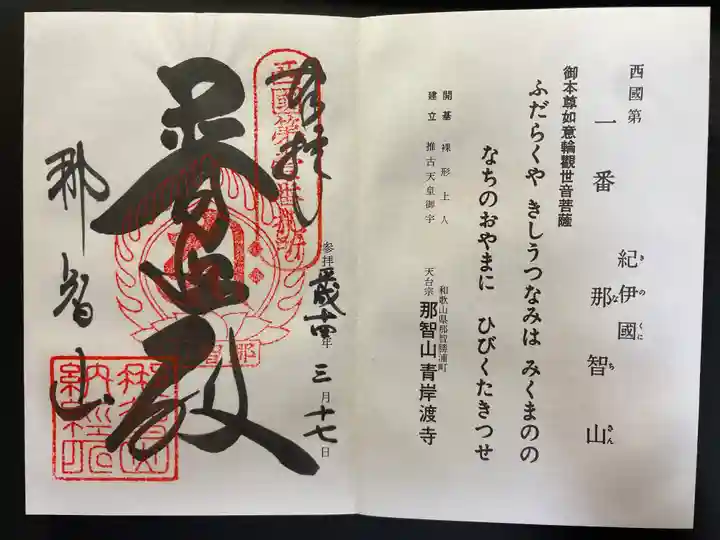 西國第
一番
紀伊國
きのくに
那智山
なちさん
御本尊如意輪觀世音菩薩
ふだらくや きしうつなみは みくまのの
なちのおやまに ひびくたきつせ
開基 裸形上人
建立 推古天皇御宇
和歌山県那智勝浦町
天台宗 那智山青岸渡寺
奉拝
西國第壹番札所
参拝 平成十四年 三月十七日
普照殿
那智山